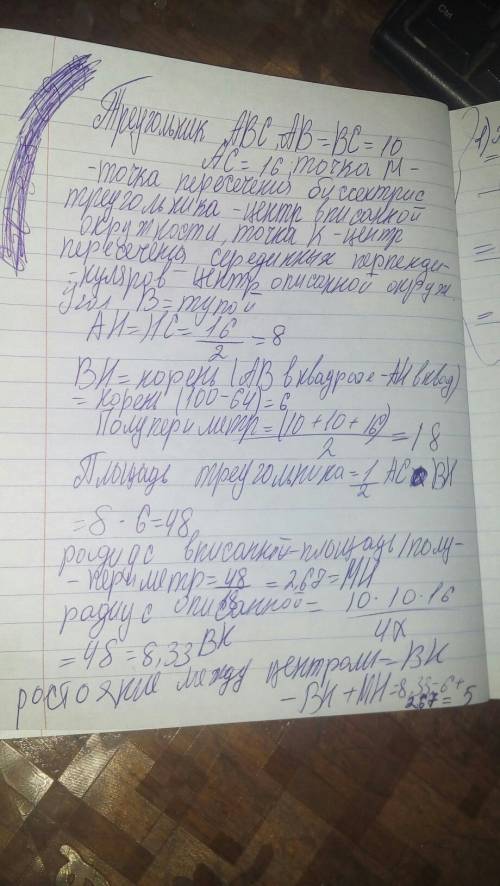 Треугольник ABC, AB=BC=10
AC=16, точка М-
-точка пересечения биссектрис
треугольника-центр вписанной
окружности, точка К-центр
пересечения серединных перпенди-
-куляров-центр описанной окруж.
Угол В=тупой
AH=HC=16/2=8
BH=корень(AB в квадрате-AH в квад)
=корень(100-64)=6
Полупериметр=(10+10+16)/2=18
Площадь треугольника=1/2 AC•BH
=8·6=48
радиус вписанной-площадь/полу-
-периметр=48/18=2,67=MH
радиус описанной=10·10·16/4х
=48=8,33 BK
ростояние между центроми=BK
-BH+MH=8,33-6+
2,67=5
Ctrl